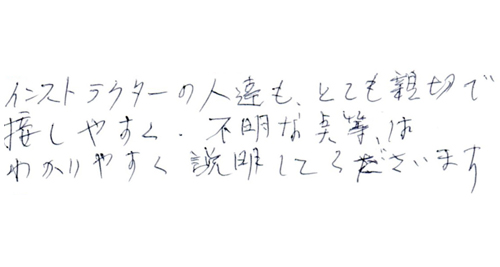 インストラクターの人達も、とても親切で
接しやすく、不明な点等、は
わかりやすく説明してくださいます